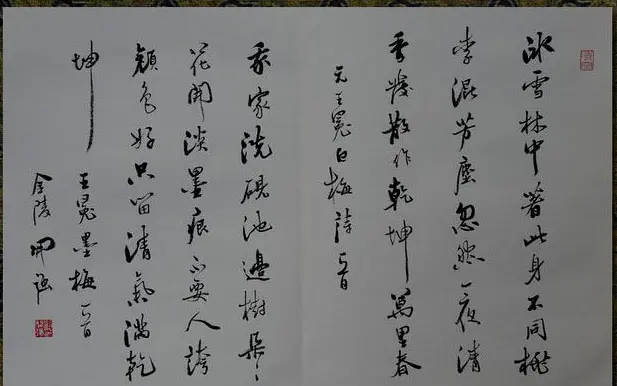 冰雪林中著此身不同桃
李混芳塵忽然一夜清
香發散作乾坤萬里春
元王冕白梅詩一首
我家洗硯池邊樹朶〻
花開淡墨痕不要人誇
顏色好只留清氣滿乾
坤
王冕墨梅一首
金陵